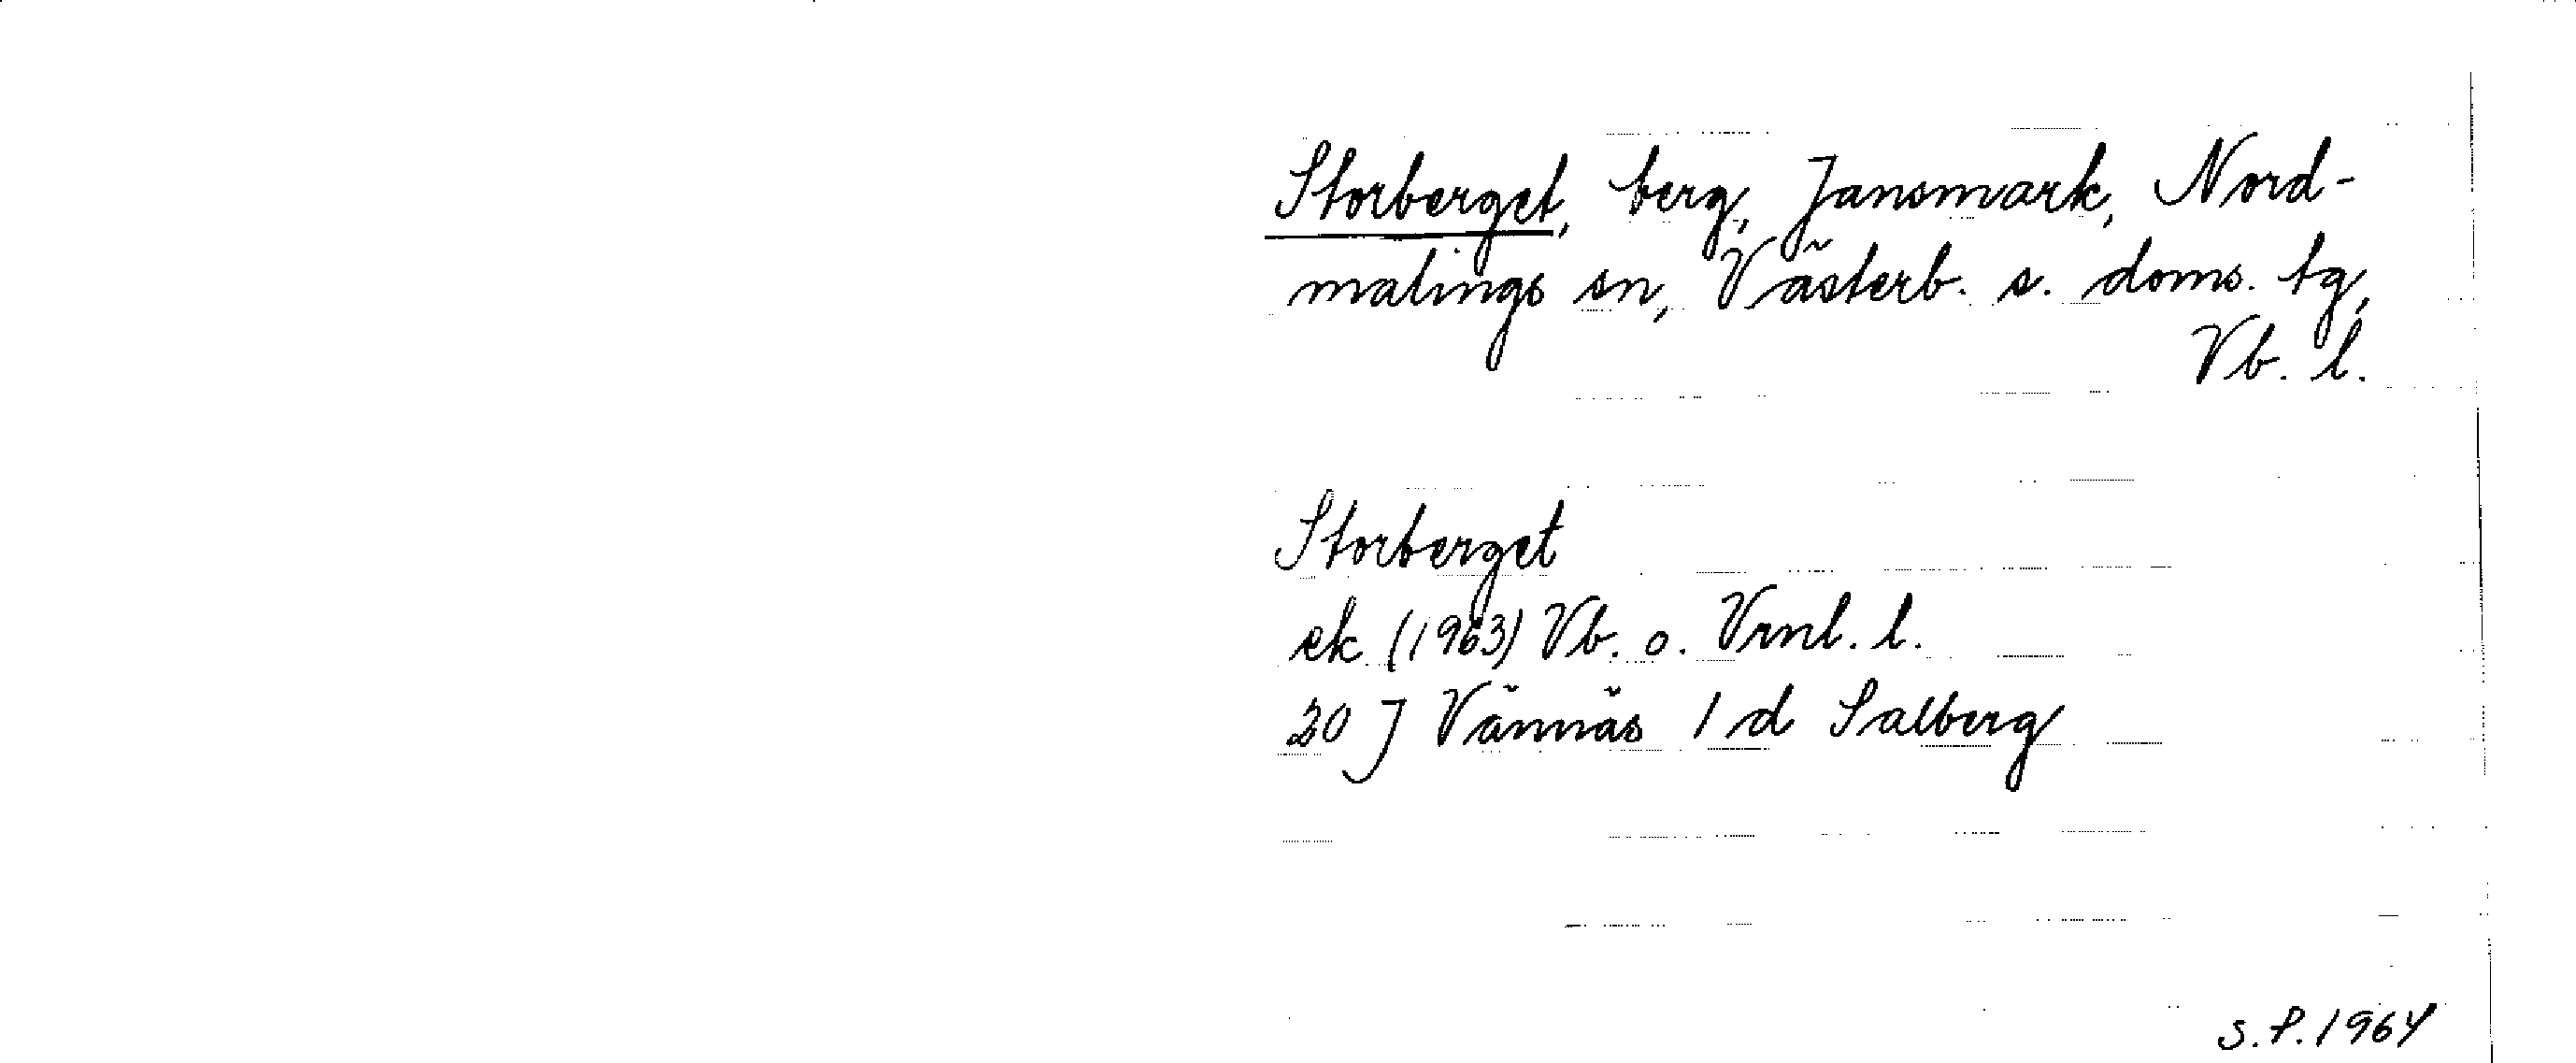 Storberget, berg, Jansmark, Nord-
malings sn, Västerb. s. doms. tg,
Vb. l.
Storberget
ek (1963) Vb. o. Vrnl. l.
20 J Vännäs 1 d Salberg
S.P. 1964